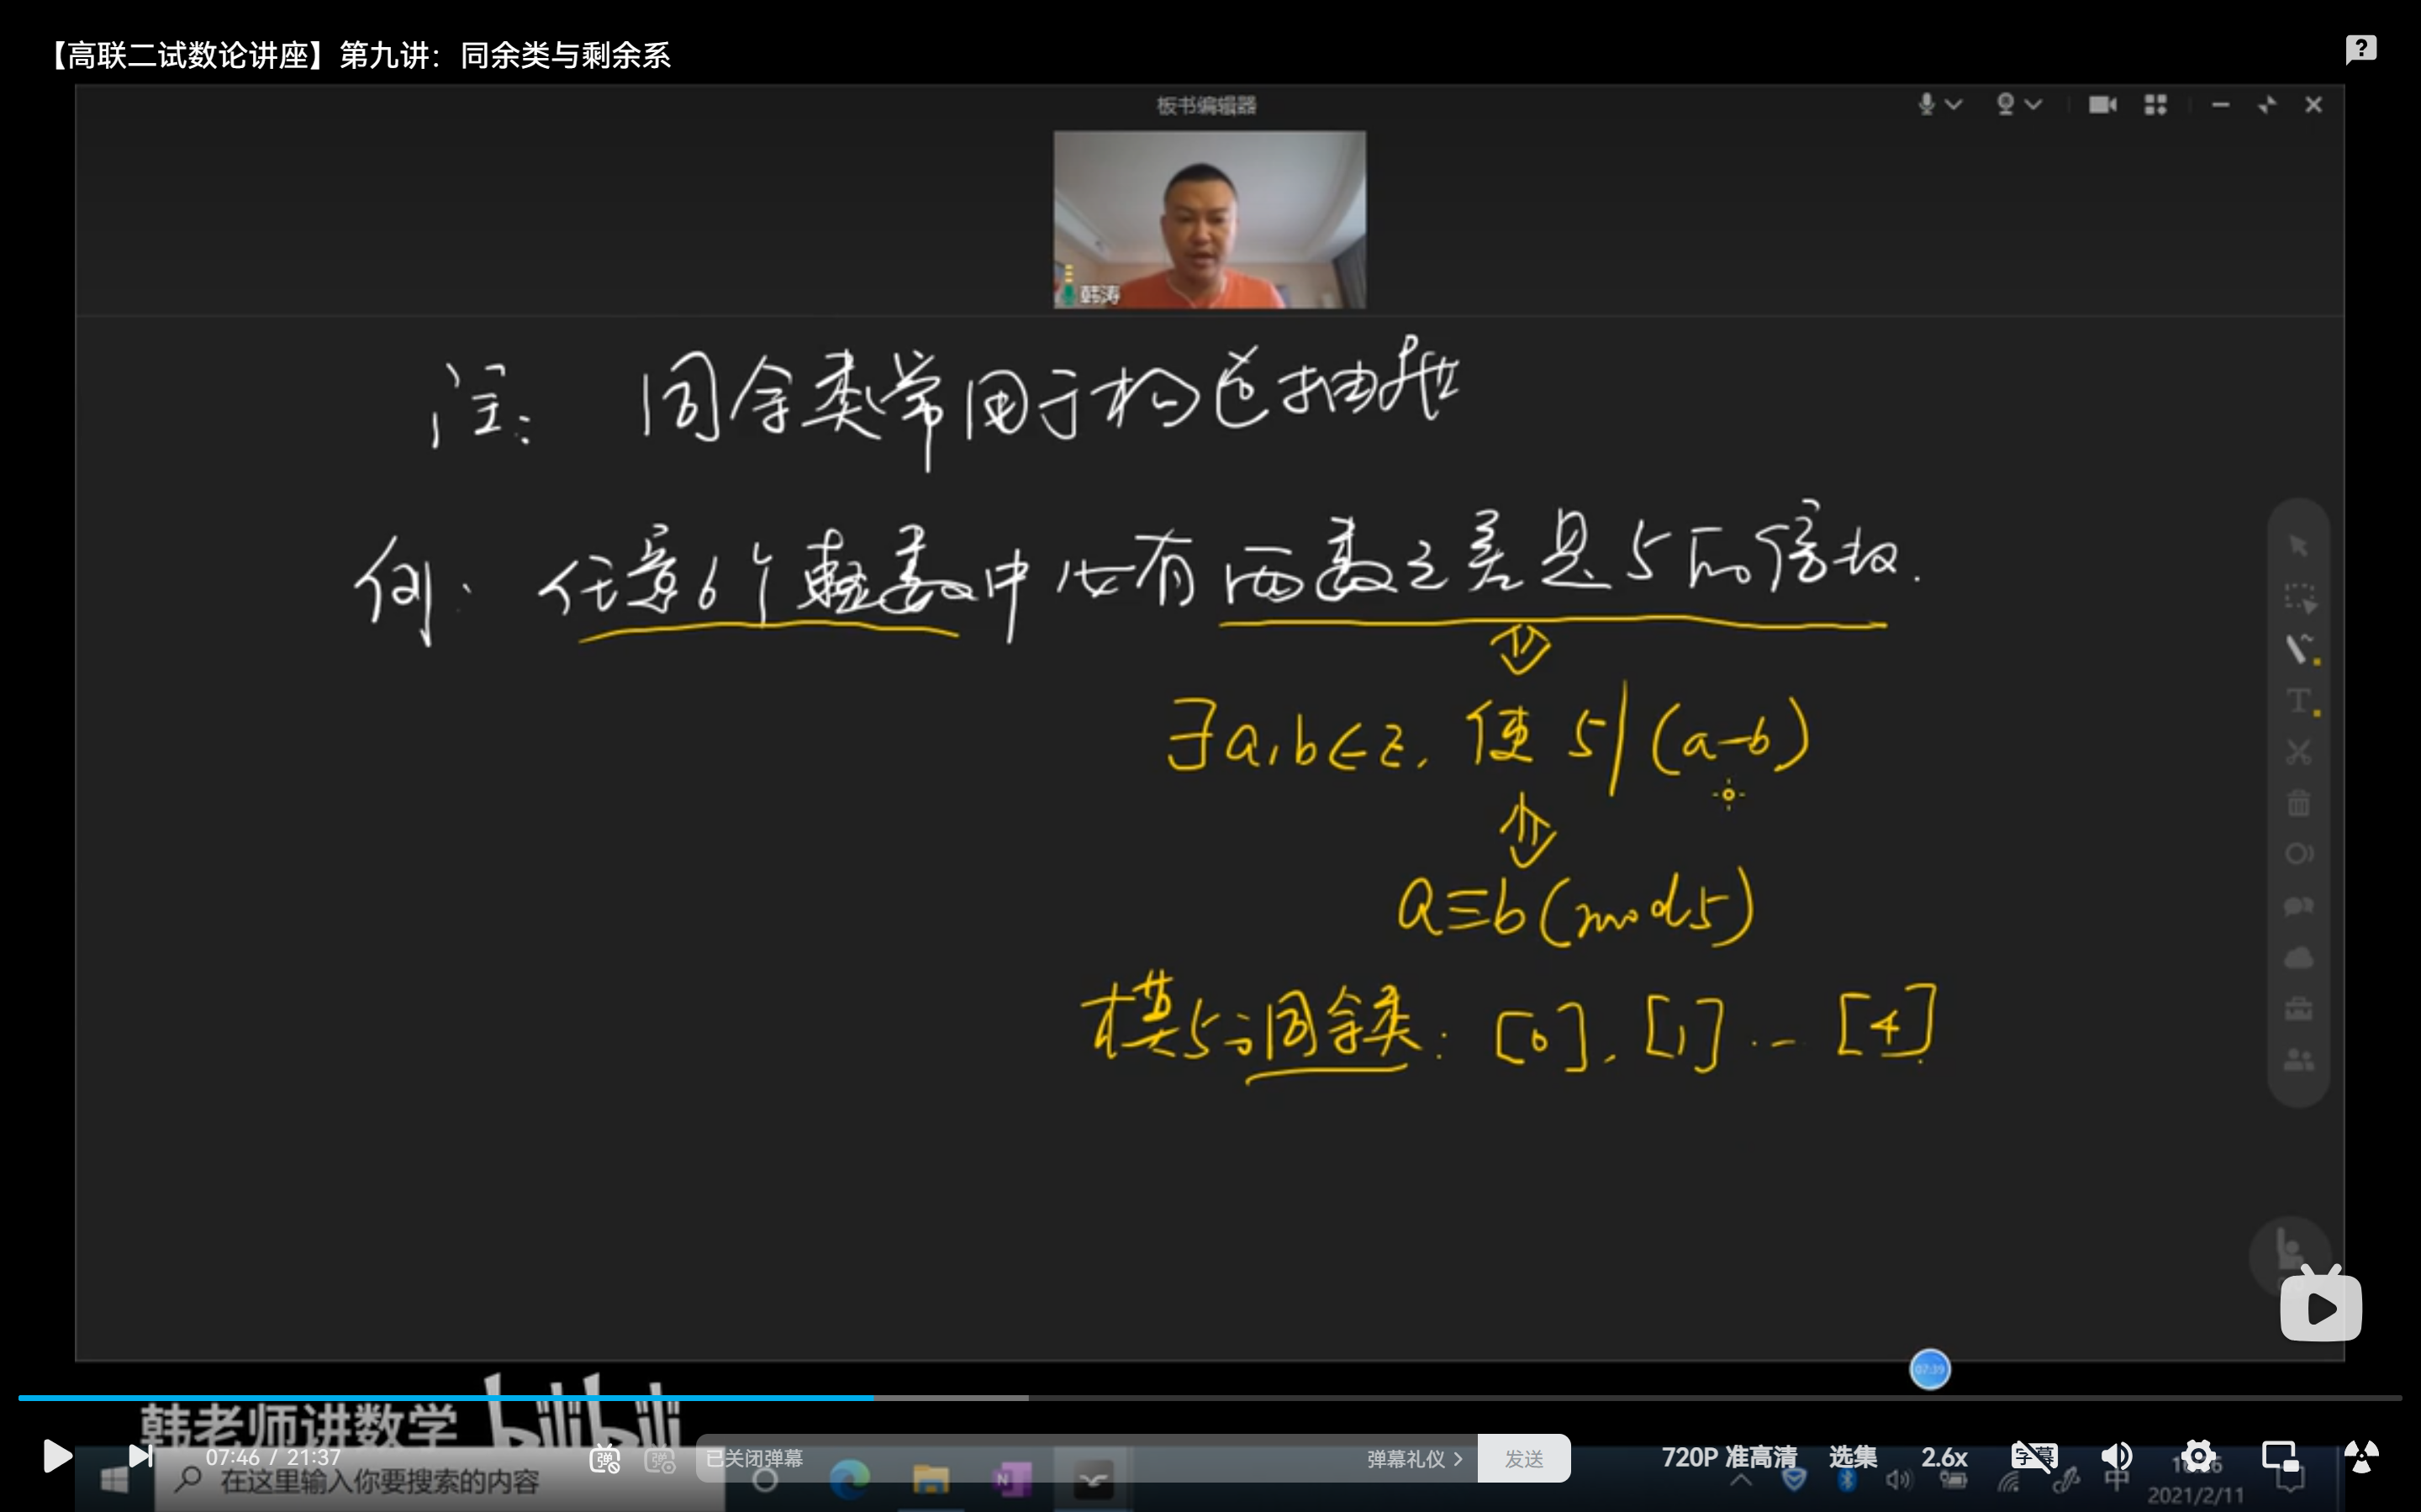 【高联二试数论讲座】第九讲：同余类与剩余系
板书编辑器
韩涛
注: 同余类常用于构造抽屉
例: 任意6个整数中必有两数之差是5的倍数.
∃a,b∈Z, 使 5|(a-b)
a≡b(mod5)
模5的同余类: [0], [1] ... [4]
07:39
韩老师讲数学 bilibili
07:46 / 21:37
已关闭弹幕
弹幕礼仪 >
发送
720P 准高清
选集
2.6x
字幕
在这里输入你要搜索的内容
中
2021/2/11